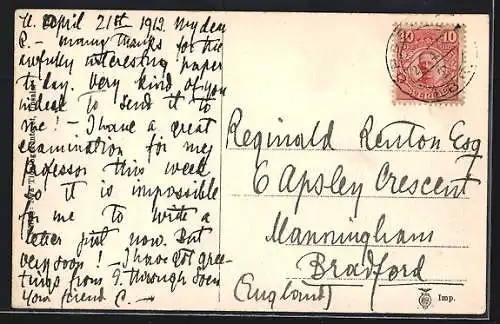 U. April 21st 1912. My dear
R. – many thanks for the
awfully interesting paper
to day. Very kind of you
indeed to send it to
me! – I have a great
examination for my
professor this week
so it is impossible
for me to write a
letter just now. But
very soon! – I have got gree-
tings from G. through Sven
Your friend C. –
10 10
Reginald Renton Esq
6 Apsley Crescent
Manningham
Bradford
(England)
Imp.